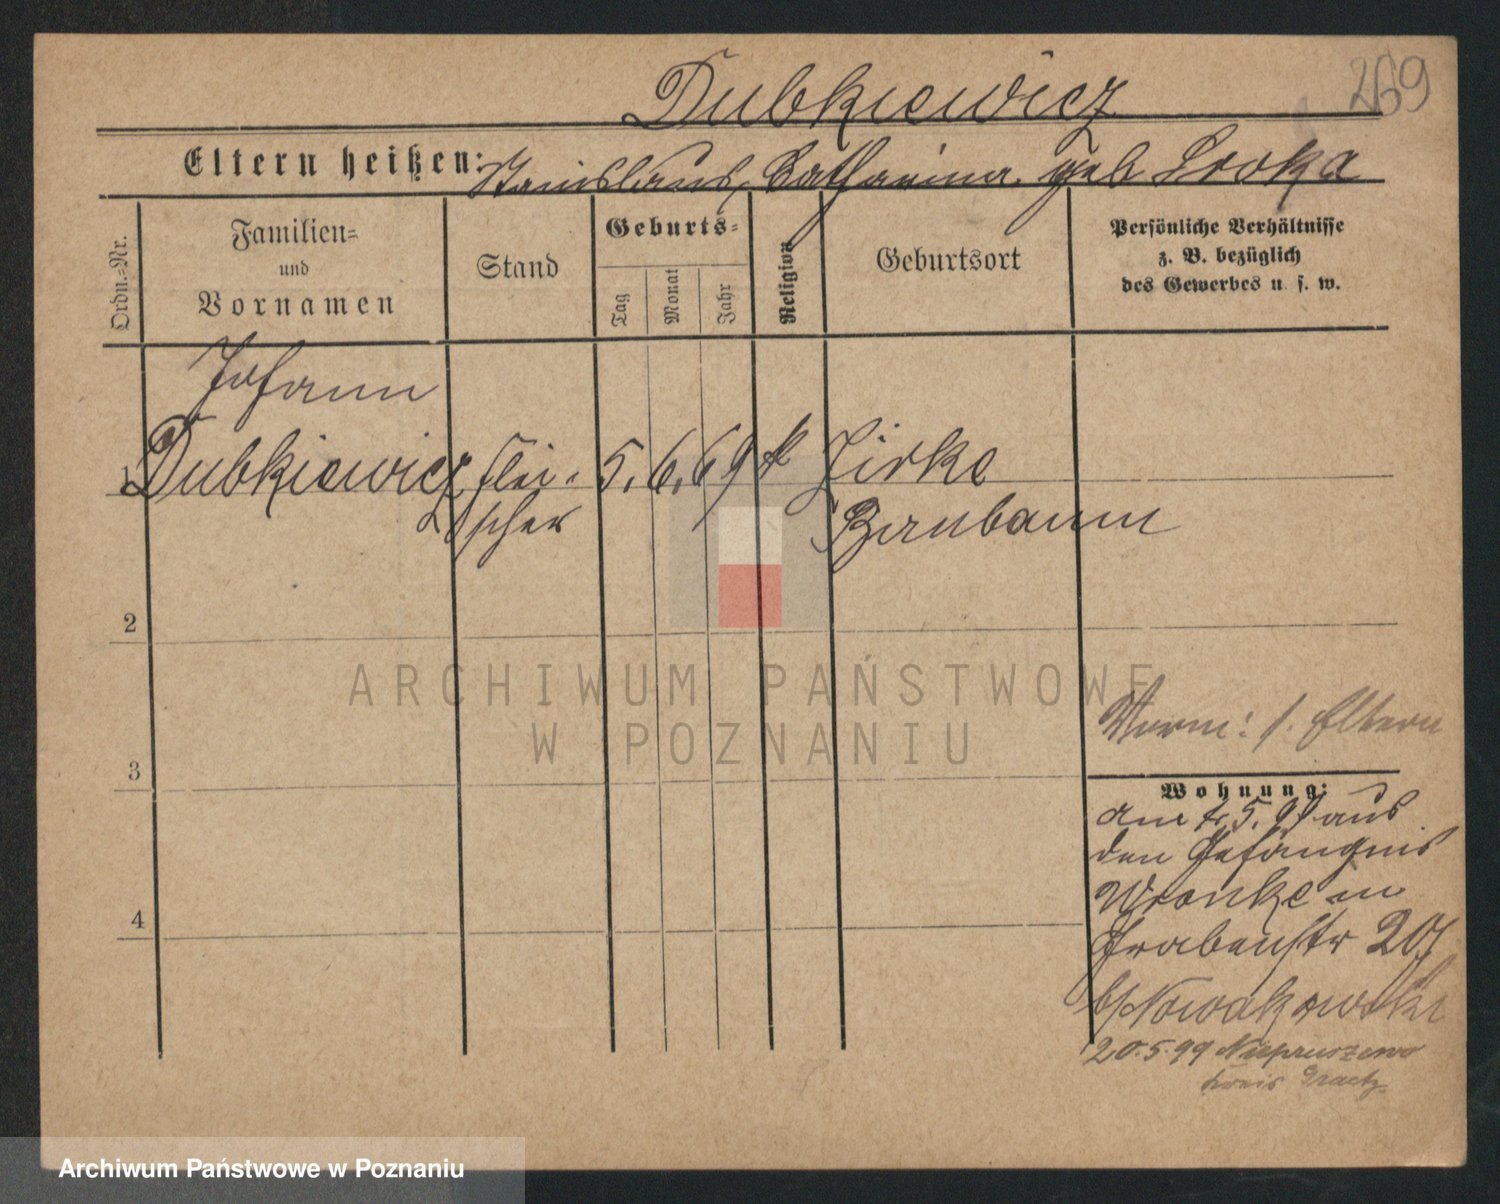 269
Dubkiewicz
Eltern heißen: Stanislaus, Catharina geb Sroka
Ordn.=Nr.
Familien=
und
Vornamen
Stand
Geburts=
Tag
Monat
Jahr
Religion
Geburtsort
Persönliche Verhältnisse
z. B. bezüglich
des Gewerbes u. s. w.
Johann
1 Dubkiewicz Flei- 5. 6. 69 k Zirke
scher Birnbaum
2
3
4
Vorm: s. Eltern
Wohnung:
am 5. 99 aus
den Gefängnis
Wronke in
Grabenstr 20
b/Nowakowski
20.5.99 Niepruszewo
Kreis Graetz
ARCHIWUM PAŃSTWOWE
W POZNANIU
Archiwum Państwowe w Poznaniu